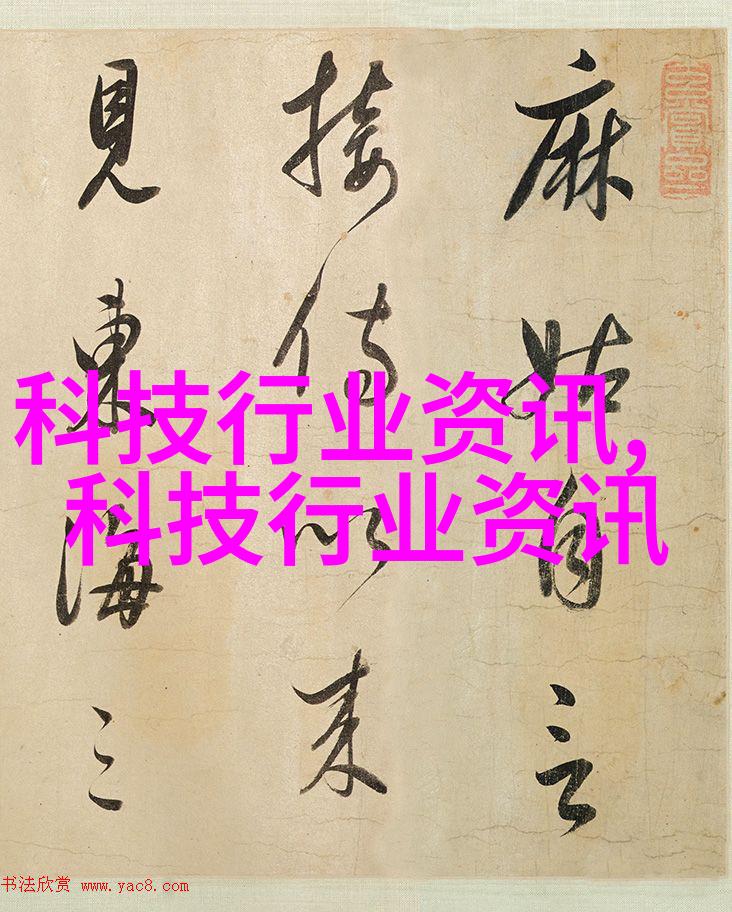 麻姑自言
接侍以来
見東海三
科技行业资讯,
科技行业资讯
书法欣赏 www.yac8.com